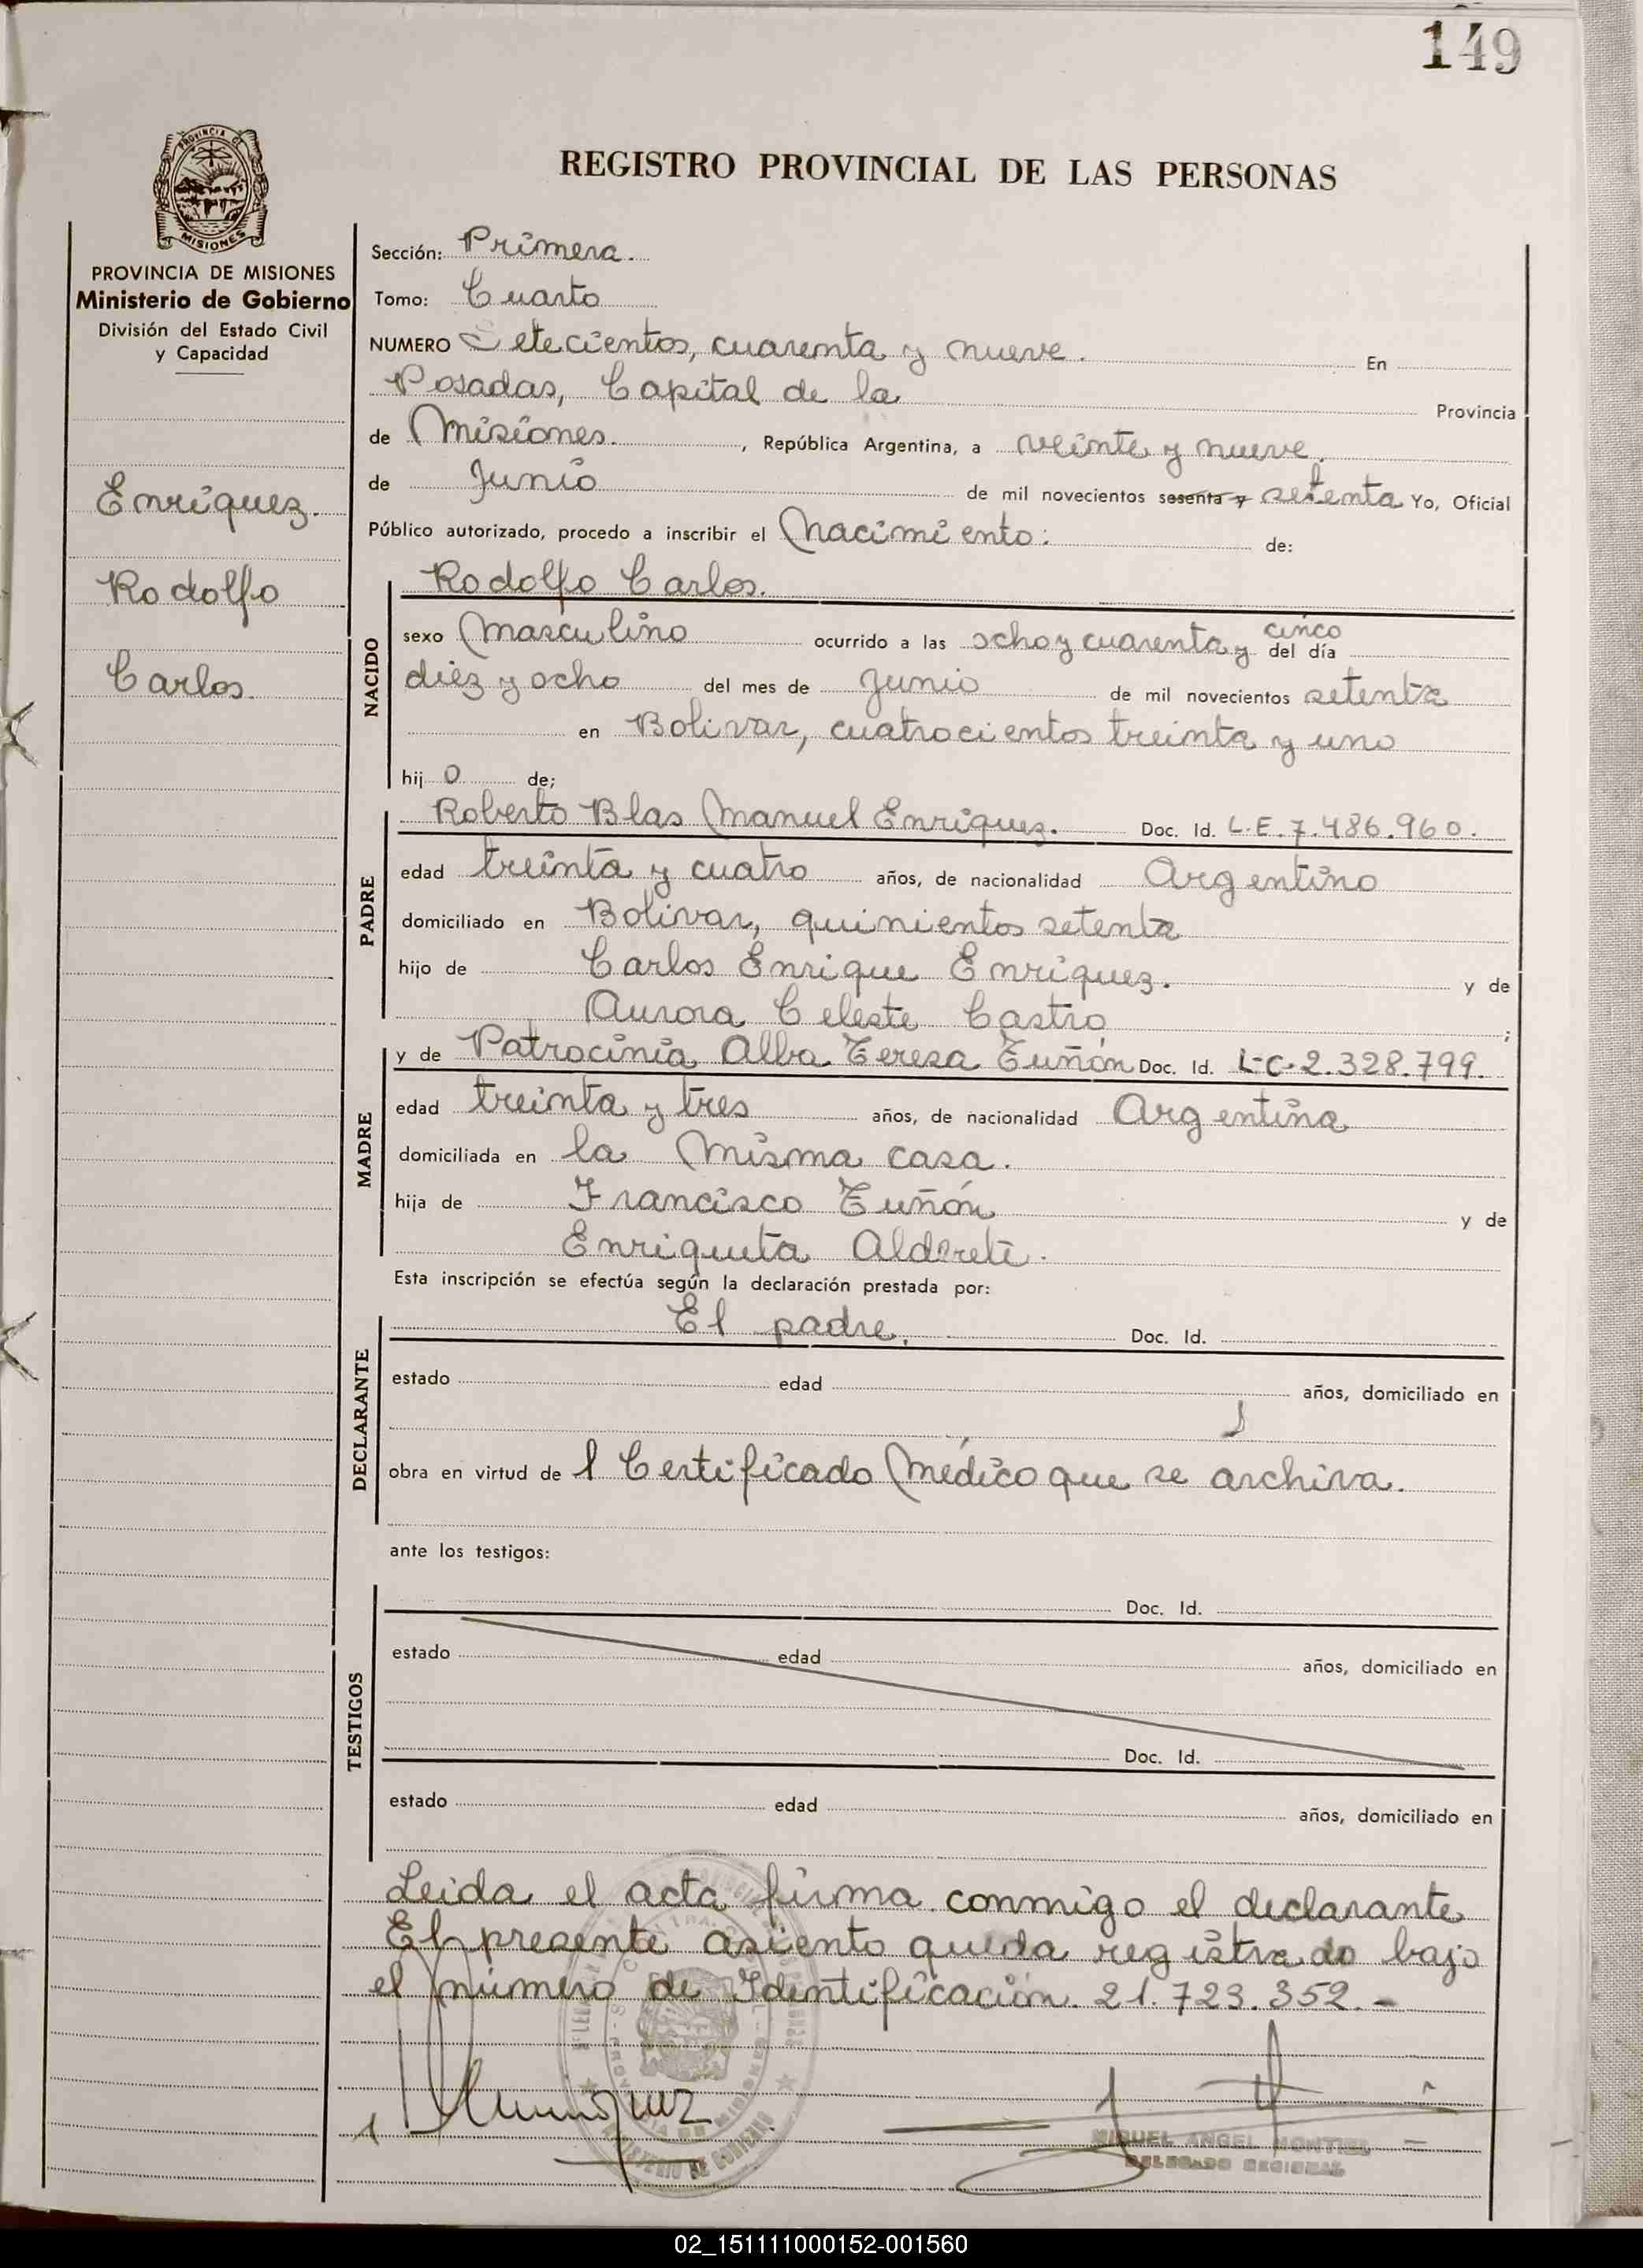 149
PROVINCIA DE
MISIONES
REGISTRO PROVINCIAL DE LAS PERSONAS
PROVINCIA DE MISIONES
Ministerio de Gobierno
División del Estado Civil
y Capacidad
Enríquez.
Rodolfo
Carlos.
Sección: Primera.
Tomo: Cuarto
NUMERO Setecientos, cuarenta y nueve. En
Posadas, Capital de la Provincia
de Misiones. , República Argentina, a veinte y nueve.
de Junio de mil novecientos sesenta y setenta Yo, Oficial
Público autorizado, procedo a inscribir el Nacimiento: de:
NACIDO
Rodolfo Carlos.
sexo Masculino ocurrido a las ocho y cuarenta y cinco del día
diez y ocho del mes de Junio de mil novecientos setenta
en Bolivar, cuatrocientos treinta y uno
hij o de;
PADRE
Roberto Blas Manuel Enríquez. Doc. Id. L.E. 7.486.960.
edad treinta y cuatro años, de nacionalidad Argentino
domiciliado en Bolivar, quinientos setenta
hijo de Carlos Enrique Enríquez. y de
Aurora Celeste Castro ;
MADRE
y de Patrocinia Alba Teresa Tuñón Doc. Id. L-C-2.328.799.
edad treinta y tres años, de nacionalidad Argentina
domiciliada en la misma casa.
hija de Francisco Tuñón y de
Enriqueta Alderete.
Esta inscripción se efectúa según la declaración prestada por:
DECLARANTE
El padre. Doc. Id.
estado edad años, domiciliado en
obra en virtud de l Certificado Médico que se archiva.
ante los testigos:
TESTIGOS
Doc. Id.
estado edad años, domiciliado en
Doc. Id.
estado edad años, domiciliado en
Leida el acta firma conmigo el declarante
El presente asiento queda registrado bajo
el número de Identificación 21.723.352.-
MINISTERIO DE GOBIERNO
MIGUEL ANGEL MONTIEL
DELEGADO REGIONAL
02_151111000152-001560